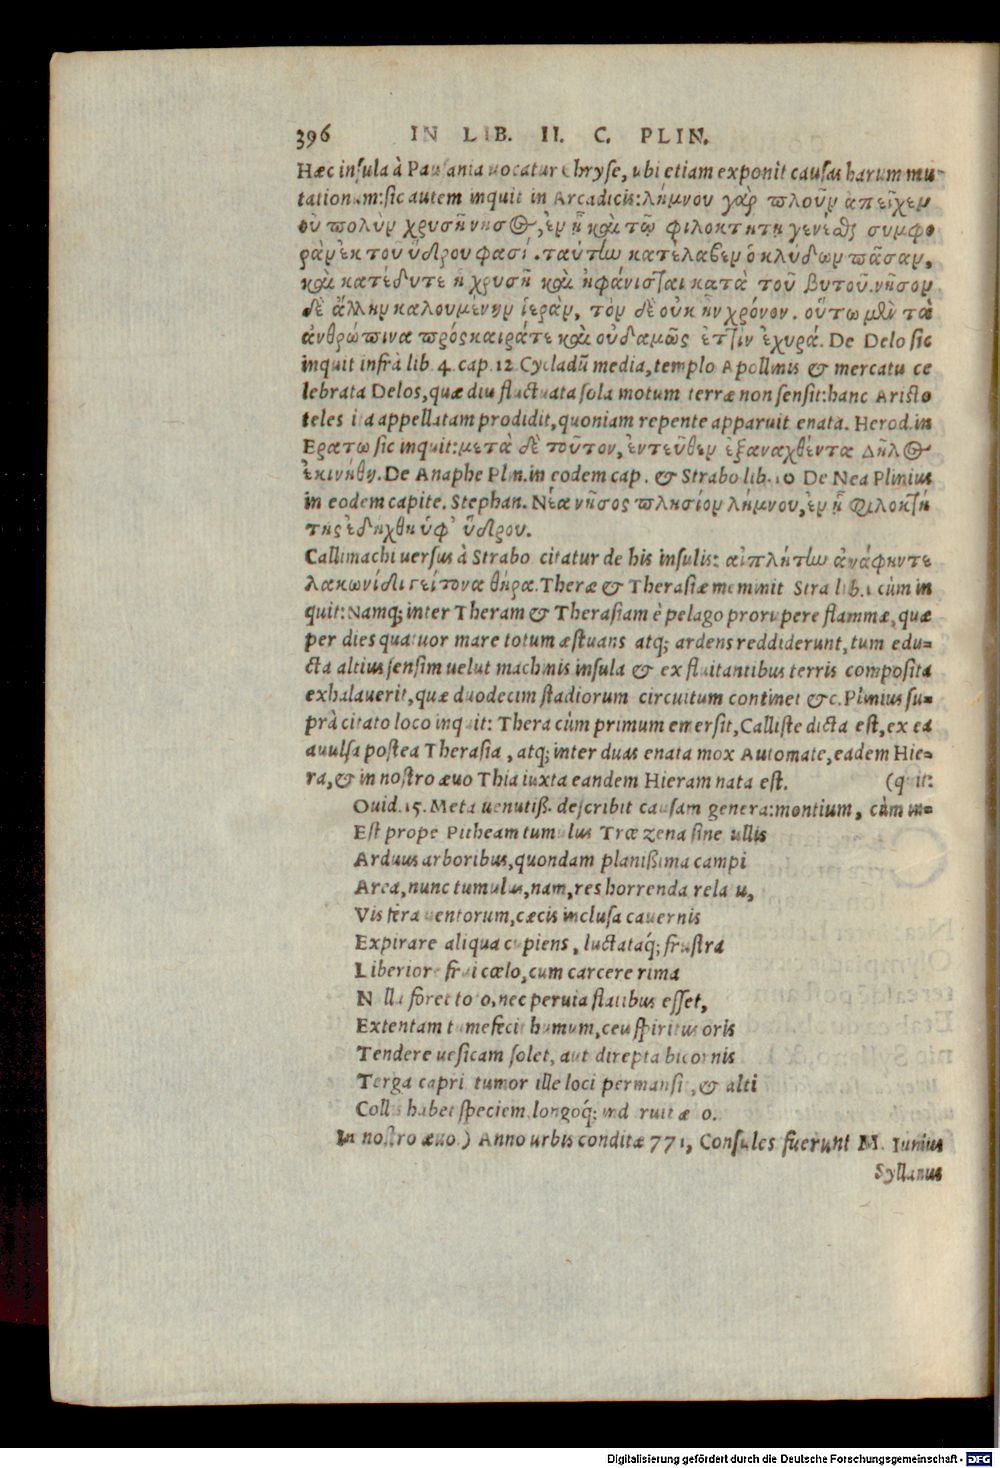 396 IN LIB. II. C. PLIN.
Hæc insula à Pausania uocatur Chryse, ubi etiam exponit causas harum mu-
tationum: sic autem inquit in Arcadicis: λήμνου γὰρ πλοῦν ἀπεῖχεν
οὐ πολὺν χρυσῆ νῆσος, ἐν ᾗ καὶ τῷ φιλοκτήτῃ γενέσθαι συμφο
ρὰν ἐκ τοῦ ὕδρου φασί. ταύτην κατέλαβεν ὁ κλύδων πᾶσαν,
καὶ κατέδυτε ἡ χρυσῆ καὶ ἠφάνισται κατὰ τοῦ βυτοῦ. νῆσον
δὲ ἄλλην καλουμένην ἱερὰν, τὸν δὲ οὐκ ἦν χρόνον. οὕτω μὲν τὰ
ἀνθρώπινα πρόσκαιρά τε καὶ οὐδαμῶς ἐστὶν ἐχυρά. De Delo sic
inquit infrà lib. 4. cap. 12 Cycladū media, templo Apollinis & mercatu ce
lebrata Delos, quæ diu fluctuata sola motum terræ non sensit: hanc Aristo
teles ita appellatam prodidit, quoniam repente apparuit enata. Herod. in
Ερατω sic inquit: μετὰ δὲ τοῦτον, ἐντεῦθεν ἐξαναχθέντα Δῆλος
ἐκινήθη. De Anaphe Plin. in eodem cap. & Strabo lib. 10 De Nea Plinius
in eodem capite. Stephan. Νέα νῆσος πλησίον λήμνου, ἐν ᾗ Φιλοκτή
της ἐδήχθη ὑφ’ ὕδρου.
Callimachi uersus à Strabo citatur de his insulis: αἰπλήτην ἀνάφην τε
λακωνίδι γείτονα θήρα. Theræ & Therasiæ meminit Stra lib. 1 cùm in
quit: Namq; inter Theram & Therasiam è pelago prorupere flammæ, quæ
per dies quatuor mare totum æstuans atq; ardens reddiderunt, tum edu-
cta altius sensim uelut machinis insula & ex fluitantibus terris composita
exhalauerit, quæ duodecim stadiorum circuitum continet &c. Plinius su-
prà citato loco inquit: Thera cùm primum emersit, Calliste dicta est, ex ea
auulsa postea Therasia, atq; inter duas enata mox Automate, eadem Hie-
ra, & in nostro æuo Thia iuxta eandem Hieram nata est. (quit:
Ouid. 15. Meta uenutiß. describit causam genera: montium, cùm in-
Est prope Pitheam tumulus Træzena sine ullis
Arduus arboribus, quondam planißima campi
Area, nunc tumulus, nam, res horrenda relatu,
Vis fera uentorum, cæcis inclusa cauernis
Expirare aliqua cupiens, luctataq́; frustra
Liberiore frui cœlo, cum carcere rima
Nulla foret toto, nec peruia flatibus esset,
Extentam tumefecit humum, ceu spiritus oris
Tendere uesicam solet, aut direpta bicornis
Terga capri tumor ille loci permansit, & alti
Collis habet speciem, longoq́; induruit æuo.
In nostro æuo.) Anno urbis conditæ 771, Consules fuerunt M. Iunius
Syllanus
Digitalisierung gefördert durch die Deutsche Forschungsgemeinschaft - DFG